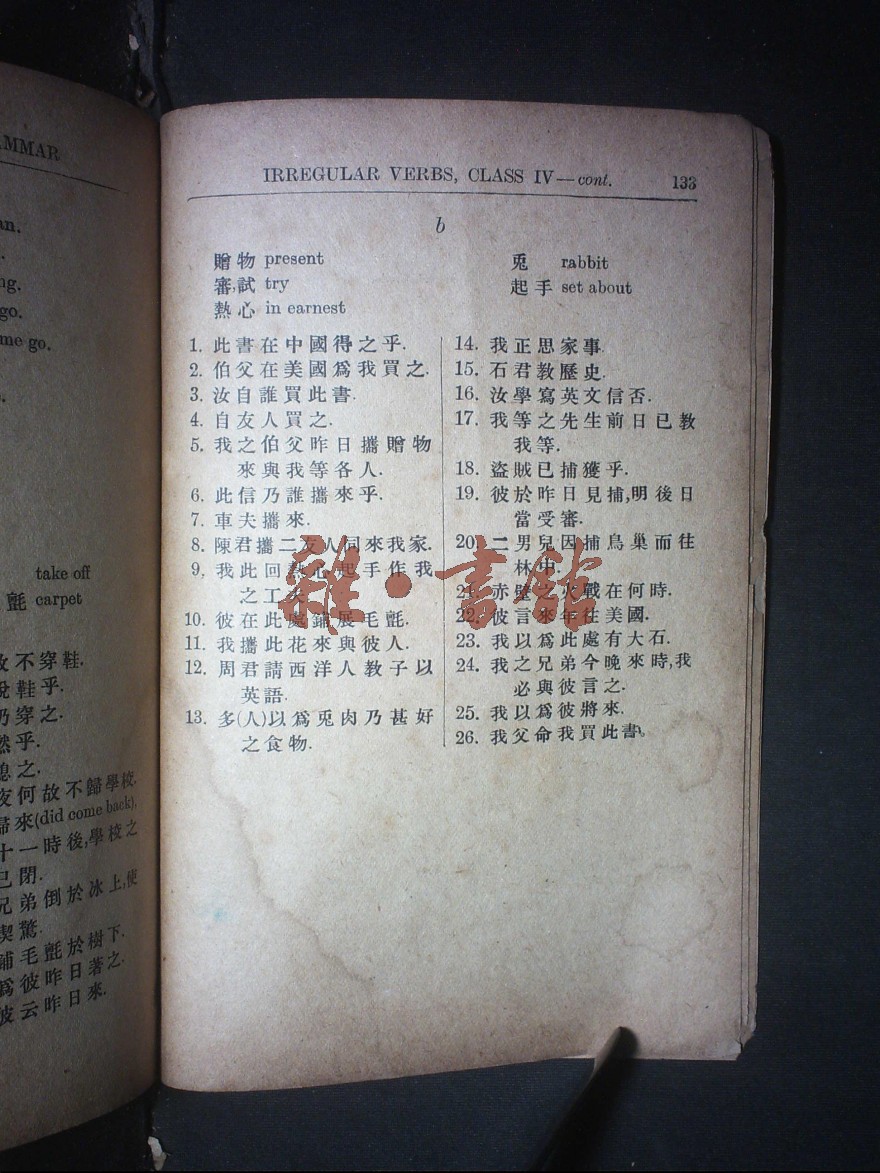 AMMAR
an.
ng.
go.
me go.
take off
氈 carpet
故不穿鞋.
鞋乎.
乃穿之.
然乎.
息之.
夜何故不歸學校.
歸來(did come back),
十一時後,學校之
已閉.
兄弟倒於冰上,使
喫驚.
鋪毛氈於樹下.
爲彼昨日著之.
彼云昨日來.
IRREGULAR VERBS, CLASS IV—cont. 133
b
贈物 present
審,試 try
熱心 in earnest
兎 rabbit
起手 set about
1. 此書在中國得之乎.
2. 伯父在美國爲我買之.
3. 汝自誰買此書.
4. 自友人買之.
5. 我之伯父昨日攜贈物
來與我等各人.
6. 此信乃誰攜來乎.
7. 車夫攜來.
8. 陳君攜二友人同來我家.
9. 我此回熱心起手作我
之工夫.
10. 彼在此處鋪展毛氈.
11. 我攜此花來與彼人.
12. 周君請西洋人教子以
英語.
13. 多(人)以爲兎肉乃甚好
之食物.
14. 我正思家事.
15. 石君教歷史.
16. 汝學寫英文信否.
17. 我等之先生前日已教
我等.
18. 盜賊已捕獲乎.
19. 彼於昨日見捕,明後日
當受審.
20. 二男兒因捕鳥巢而往
林中.
21. 赤壁之火戰在何時.
22. 彼言來年往美國.
23. 我以爲此處有大石.
24. 我之兄弟今晚來時,我
必與彼言之.
25. 我以爲彼將來.
26. 我父命我買此書.
雜·書館